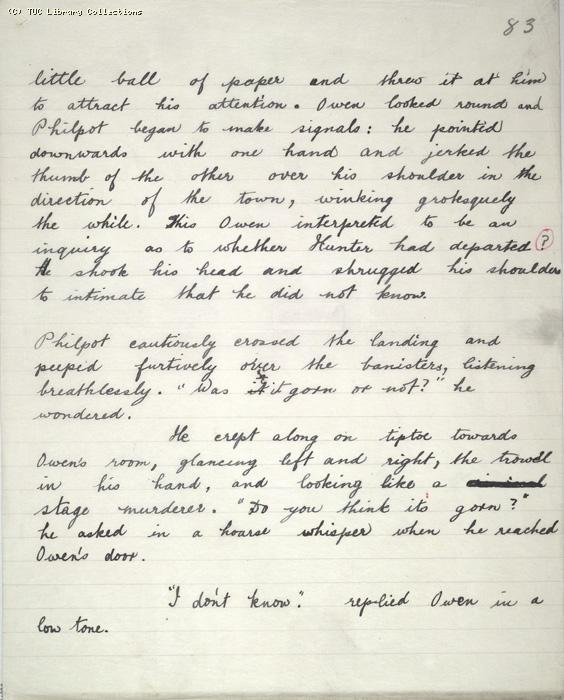 (C) TUC Library Collections
83
little ball of paper and threw it at him
to attract his attention. Owen looked round and
Philpot began to make signals: he pointed
downwards with one hand and jerked the
thumb of the other over his shoulder in the
direction of the town, winking grotesquely
the while. This Owen interpreted to be an
inquiry as to whether Hunter had departed ?
He shook his head and shrugged his shoulders
to intimate that he did not know.
Philpot cautiously crossed the landing and
peepid furtively over the banisters, listening
breathlessly. "Was it gorn or not?" he
wondered.
He crept along on tiptoe towards
Owen's room, glancing left and right, the trowell
in his hand, and looking like a
stage murderer. "Do you think it's gorn?"
he asked in a hoarse whisper when he reached
Owen's door.
"I don't know." replied Owen in a
low tone.